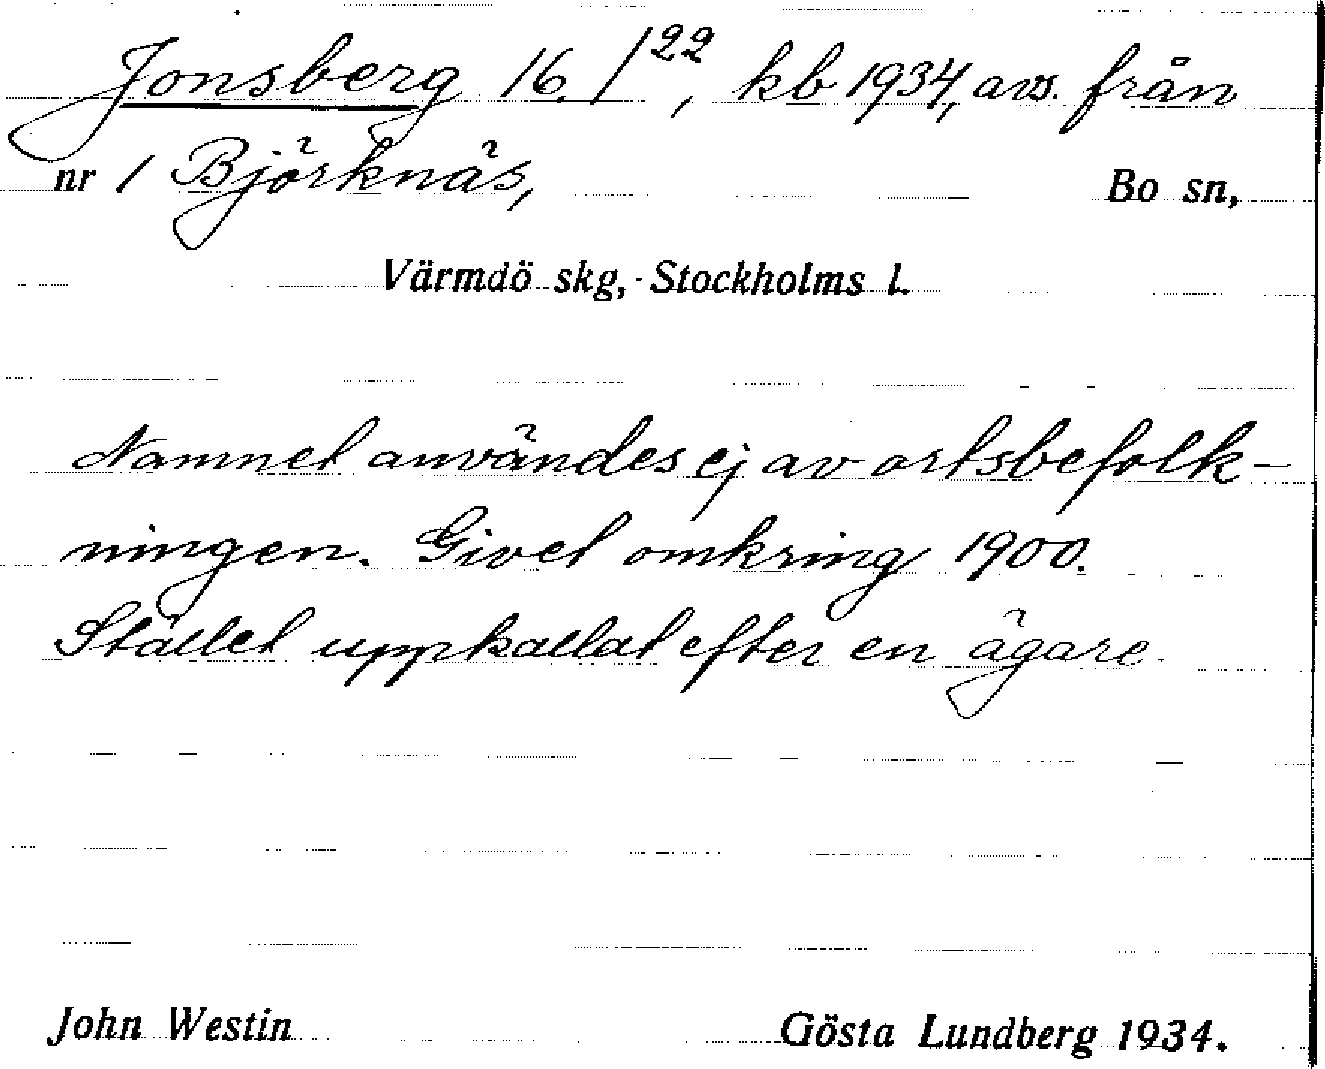 Jonsberg 16. /22, kb 1934, avs. från
nr 1 Björknäs, Bo sn,
Värmdö skg, Stockholms l.
Namnet användes ej av ortsbefolk-
ningen. Givet omkring 1900.
Stället uppkallat efter en ägare.
John Westin Gösta Lundberg 1934.